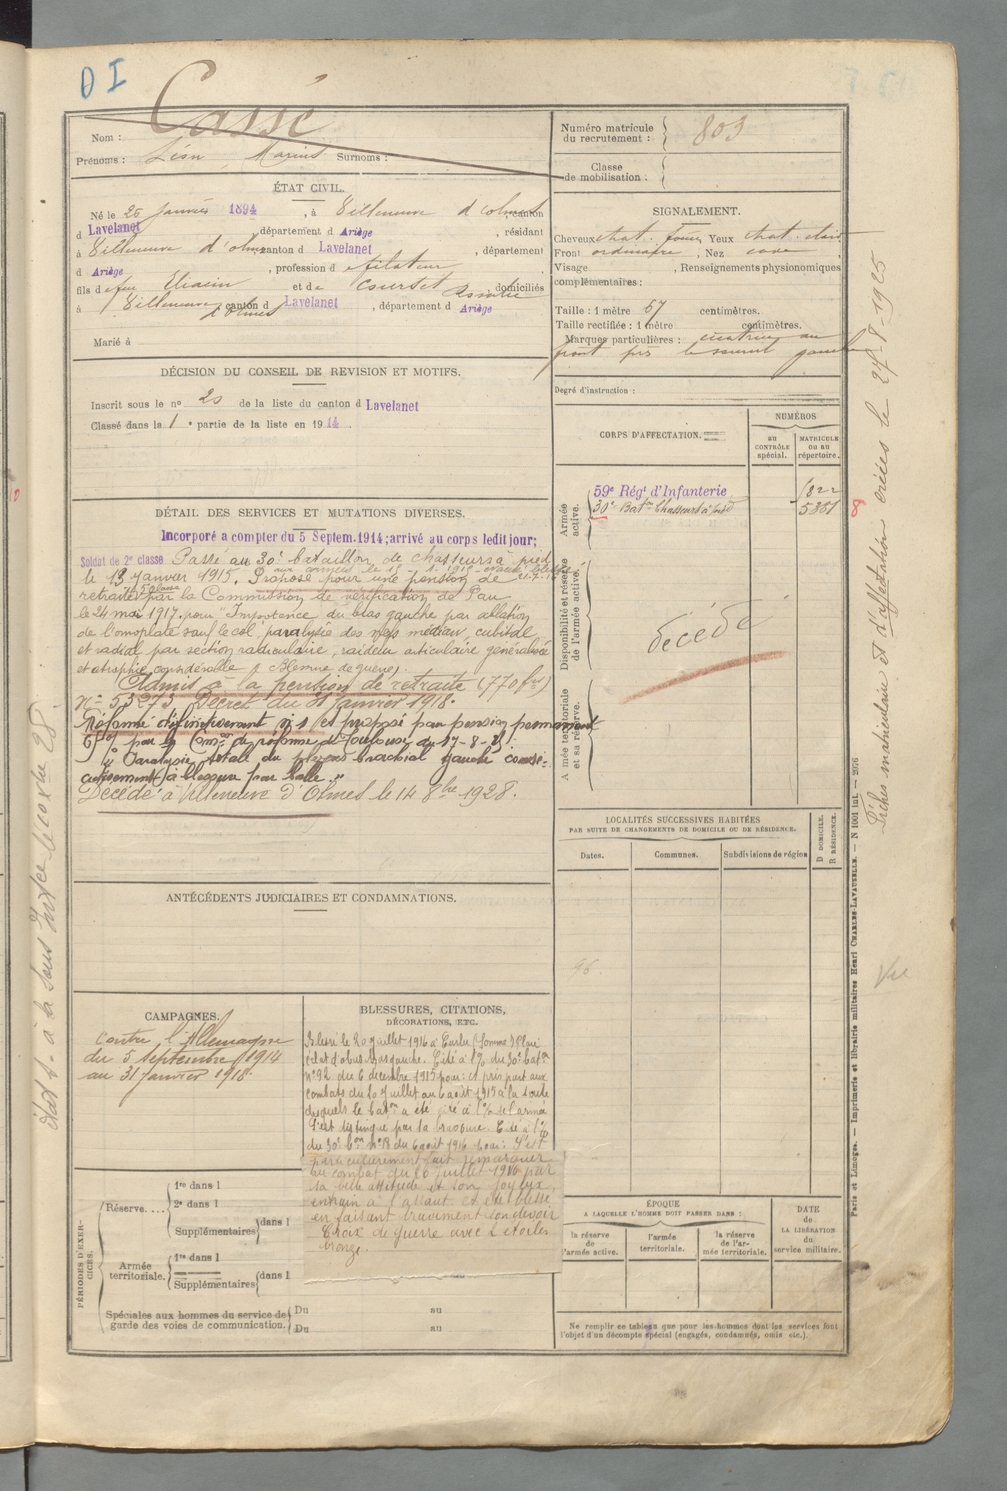 DI
Cassé
Nom :
Prénoms : Léon Marius Surnoms :
Numéro matricule
du recrutement : 803
Classe
de mobilisation :
ÉTAT CIVIL.
Né le 26 janvier 1894, à Villeneuve d'olmes, canton
d Lavelanet, département d Ariège, résidant
à Villeneuve d'olmes canton d Lavelanet, département
d Ariège, profession de filateur
fils de feu et de domiciliés
à Villeneuve d'Olmes canton d Lavelanet, département d Ariège
Marié à
SIGNALEMENT.
Cheveux chat. Yeux chat. clair
Front ordinaire, Nez
Visage , Renseignements physionomiques
complémentaires :
Taille : 1 mètre 57 centimètres.
Taille rectifiée : 1 mètre centimètres.
Marques particulières : cicatrice au
front près le sourcil gauche
Degré d'instruction :
DÉCISION DU CONSEIL DE REVISION ET MOTIFS.
Inscrit sous le n° 20 de la liste du canton d Lavelanet
Classé dans la 1e partie de la liste en 1914.
CORPS D'AFFECTATION.
NUMÉROS
au
CONTRÔLE
spécial.
MATRICULE
ou au
répertoire.
Armée
active.
59e Régt d'Infanterie
30e Baton Chasseurs à pied 5881
Disponibilité et réserve
de l'armée active.
décédé
Armée territoriale
et sa réserve.
DÉTAIL DES SERVICES ET MUTATIONS DIVERSES.
Incorporé a compter du 5 Septem. 1914; arrivé au corps ledit jour;
Soldat de 2e classe Passé au 30e bataillon de chasseurs à pied
le 13 janvier 1915. Proposé pour une pension de
retraite par la Commission de vérification de Pau
le 24 mai 1917, pour "Impotence du bras gauche par ablation
de l'omoplate sauf le col, paralysie des nerfs médian, cubital
et radial par section radiculaire, raideur articulaire généralisée
et atrophie considérable (Blessure de guerre).
Admis à la pension de retraite (770 frs)
N° 53273. Décret du 31 janvier 1918.
Réformé définitivement n° 1 et proposé pour pension permanente
par la Comon de réforme de Toulouse du 17-8-21:
Paralysie totale du plexus brachial gauche consé-
cutivement à blessure par balle.
Décédé à Villeneuve d'Olmes le 14 8bre 1928.
LOCALITÉS SUCCESSIVES HABITÉES
PAR SUITE DE CHANGEMENTS DE DOMICILE OU DE RÉSIDENCE.
Dates.
Communes.
Subdivisions de région
D DOMICILE.
R RÉSIDENCE.
ANTÉCÉDENTS JUDICIAIRES ET CONDAMNATIONS.
CAMPAGNES.
Contre l'Allemagne
du 5 septembre 1914
au 31 janvier 1918.
BLESSURES, CITATIONS,
DÉCORATIONS, ETC.
Blessé le 20 juillet 1916 à Curlu (Somme) Plaie
éclat d'obus bras gauche. Cité à l'O/ du 30e Baton
n° 92 du 6 décembre 1915 pour: a pris part aux
combats du 20 juillet au 6 août 1915 à la suite
desquels le Baton a été cité à l'O/ de l'armée
S'est distingué par sa bravoure. Cité à l'O/
du 30e Bon n° 18 du 6 août 1916 pour: S'est
particulièrement fait remarquer
au combat du 20 juillet 1916 par
sa belle attitude et son joyeux
entrain à l'assaut et été blessé
en faisant bravement son devoir
Croix de guerre avec 2 étoiles
bronze.
PÉRIODES D'EXER-
CICES.
Réserve....
1re dans l
2e dans l
Supplémentaires dans l
Armée
territoriale.
1re dans l
Supplémentaires dans l
Spéciales aux hommes du service de
garde des voies de communication.
Du au
Du au
ÉPOQUE
A LAQUELLE L'HOMME DOIT PASSER DANS :
la réserve
de
l'armée active.
l'armée
territoriale.
la réserve
de l'ar-
mée territoriale.
DATE
de
LA LIBÉRATION
du
service militaire.
Ne remplir ce tableau que pour les hommes dont les services font
l'objet d'un décompte spécial (engagés, condamnés, omis etc.).
Paris et Limoges. — Imprimerie et librairie militaires Henri CHARLES-LAVAUZELLE. — N 1001 int. — 2976
Fiches matriculaire et d'affectation créées le 27-8-1925
Vu